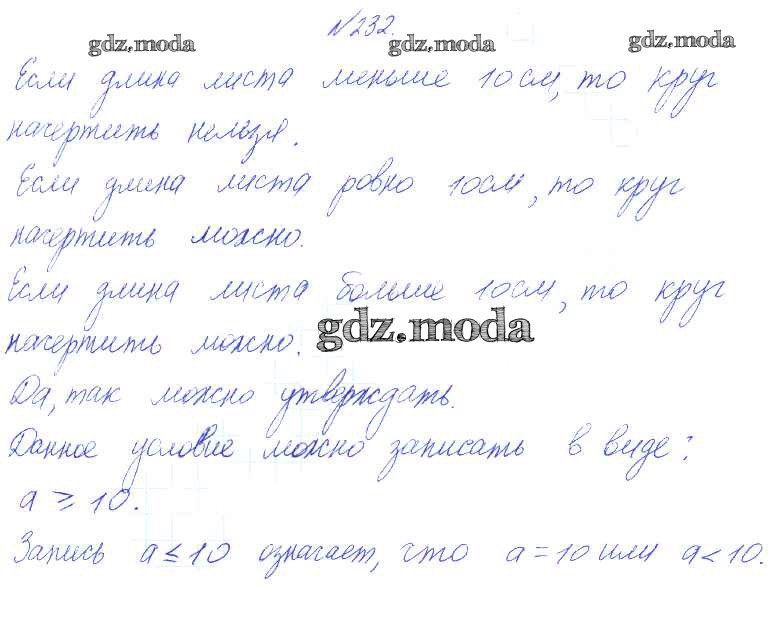 №232.
gdz.moda gdz.moda gdz.moda
Если длина листа меньше 10 см, то круг
начертить нельзя.
Если длина листа ровно 10 см, то круг
начертить можно.
Если длина листа больше 10 см, то круг
начертить можно. gdz.moda
Да, так можно утверждать.
Данное условие можно записать в виде:
a ≥ 10.
Запись a ≤ 10 означает, что a = 10 или a < 10.